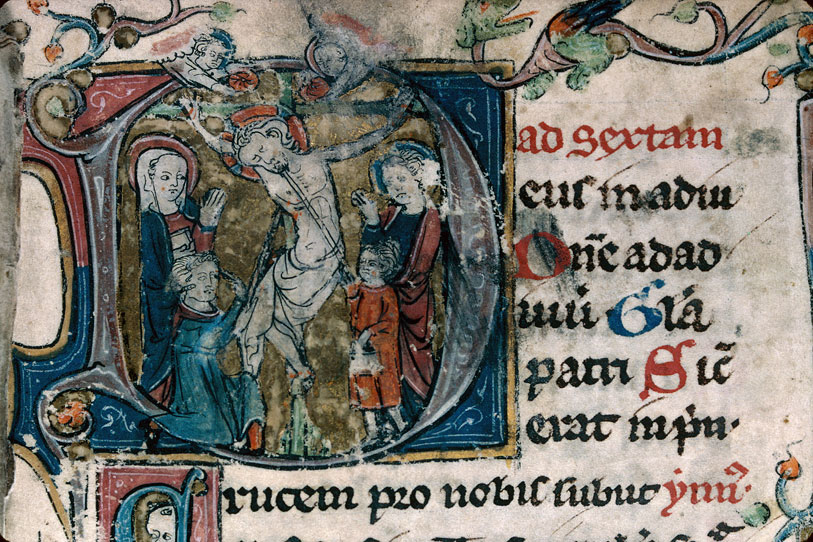 ad sextam
eus in adiu
Dn̄e ad ad
iuuā Gl̄a
patri Sic̄
erat in pn̄.
Crucem pro nobis subiit ymn̄9.